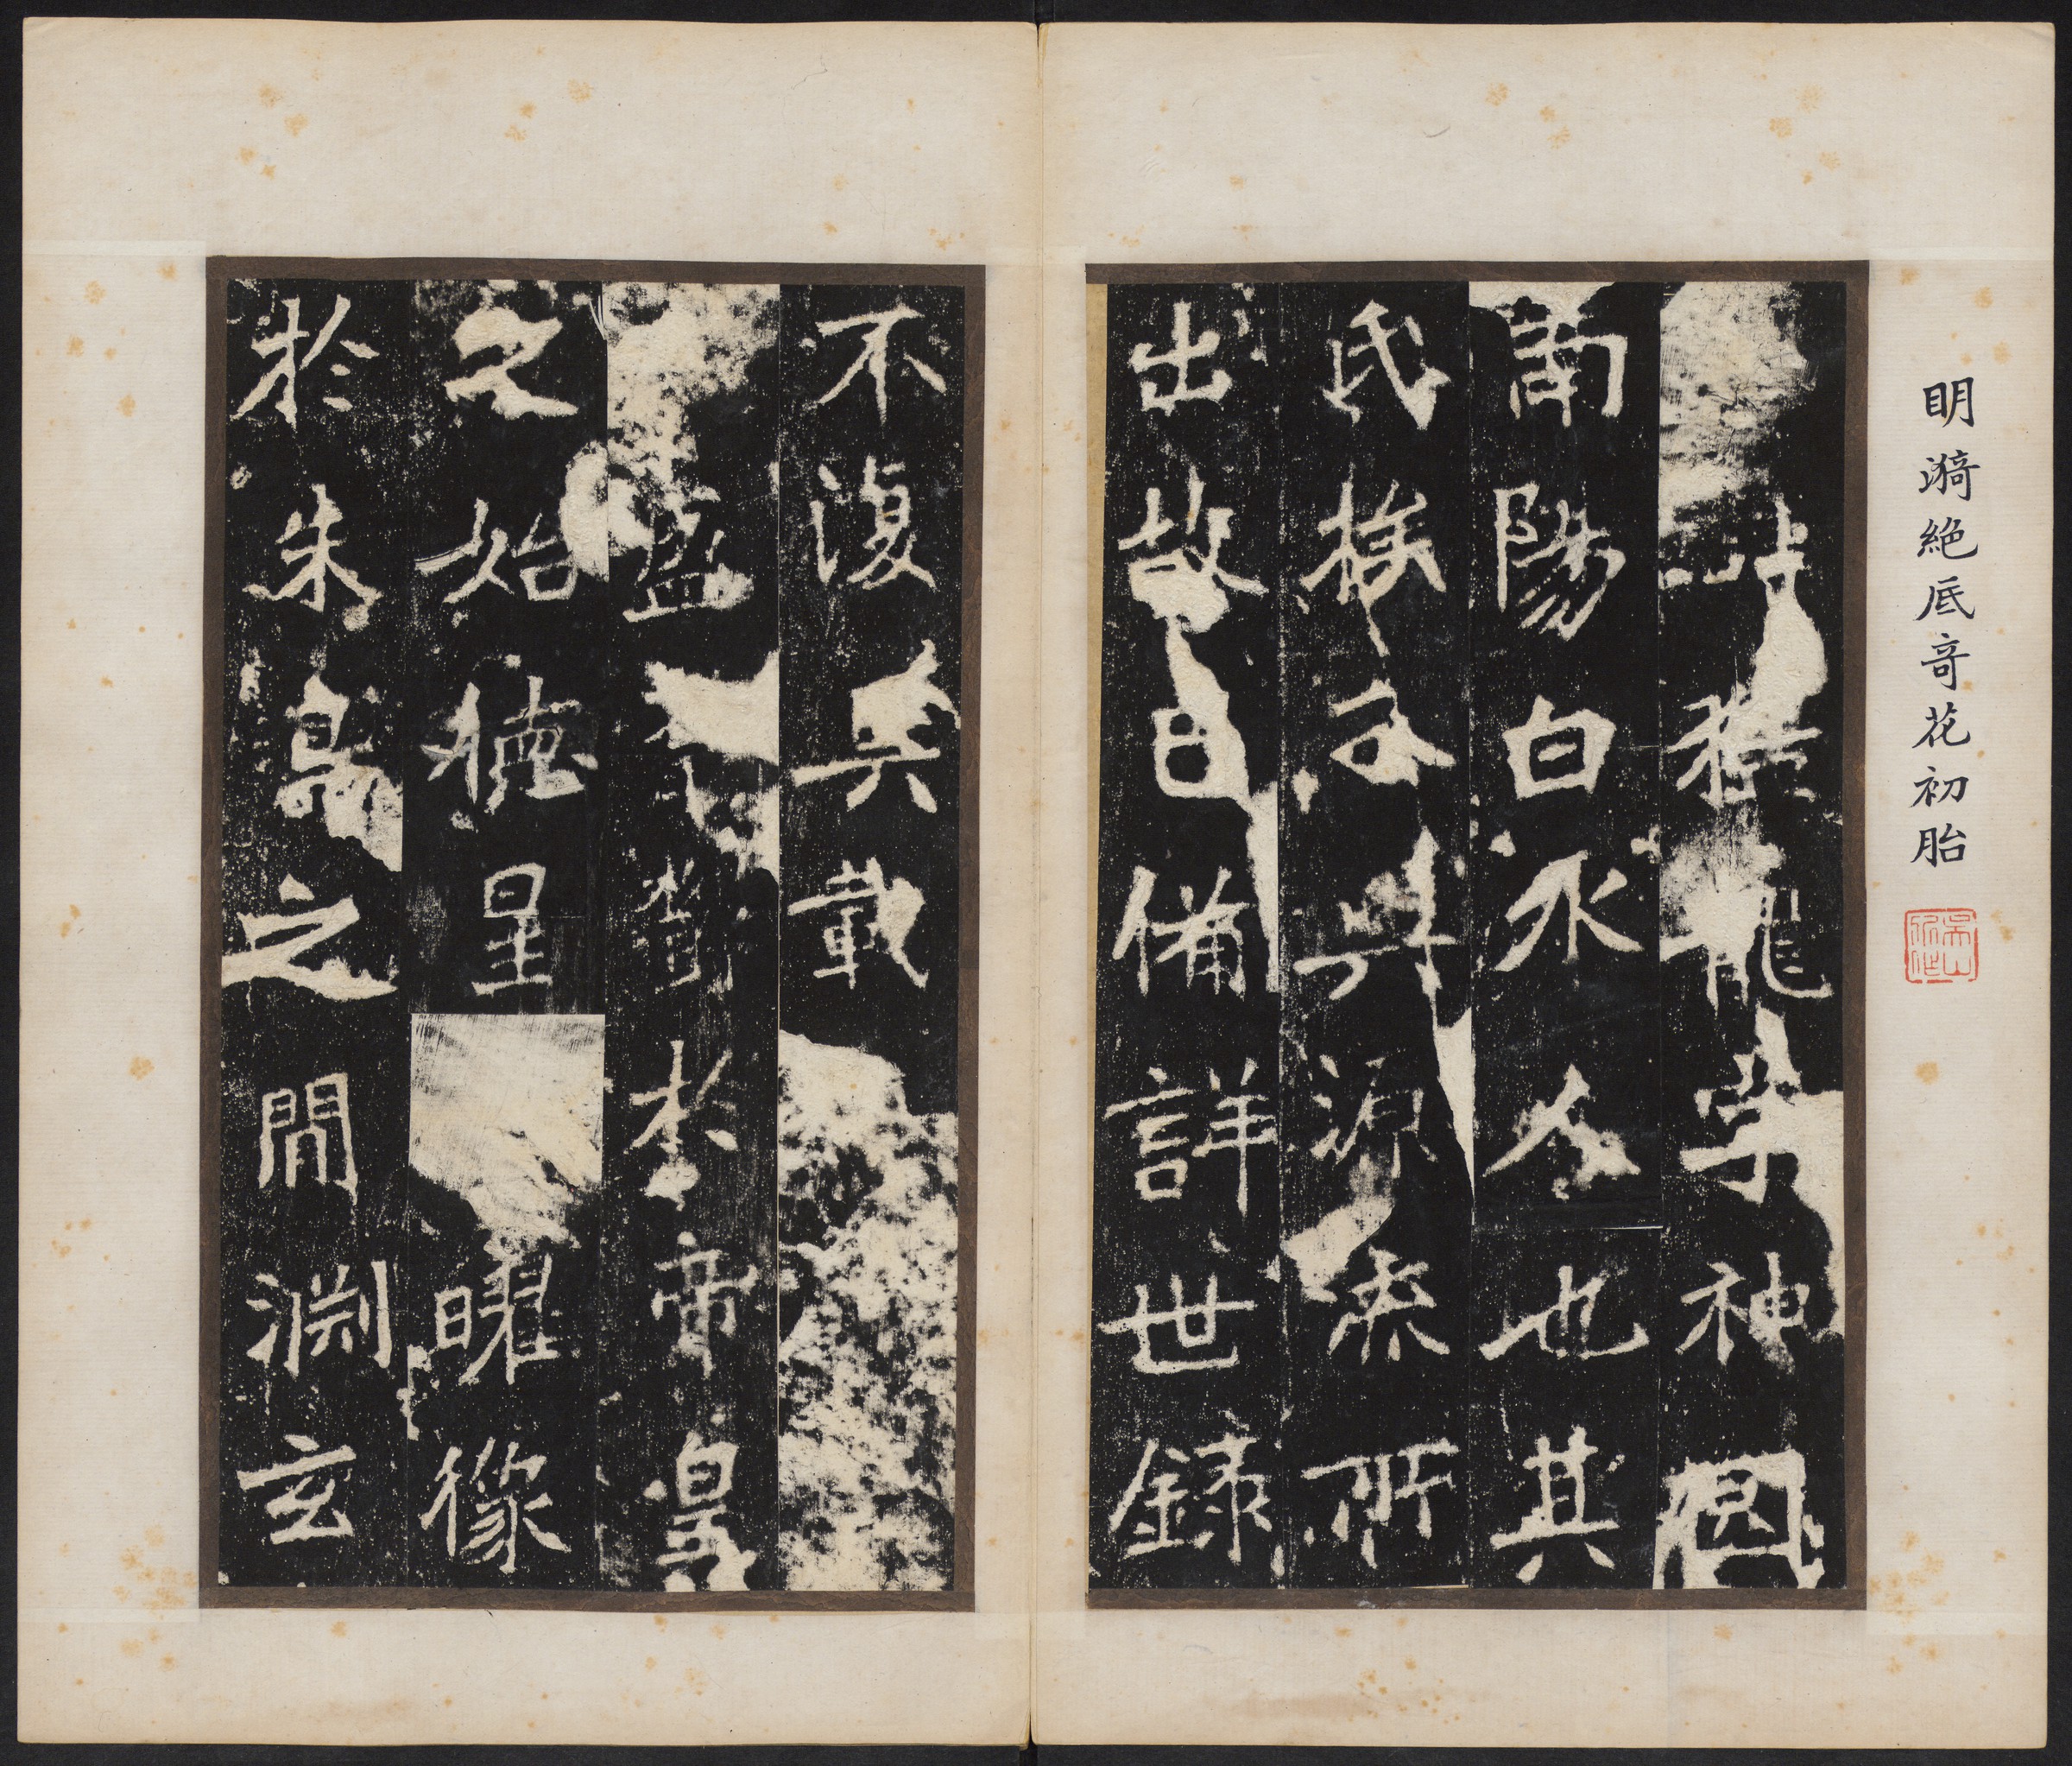 明漪絕底奇花初胎
猛龍字神囧
南陽白水人也其
氏族分興源流所
出故已備詳世錄
不復具載
盛鬱於帝皇
之始德星曜像
於朱鳥之間淵玄